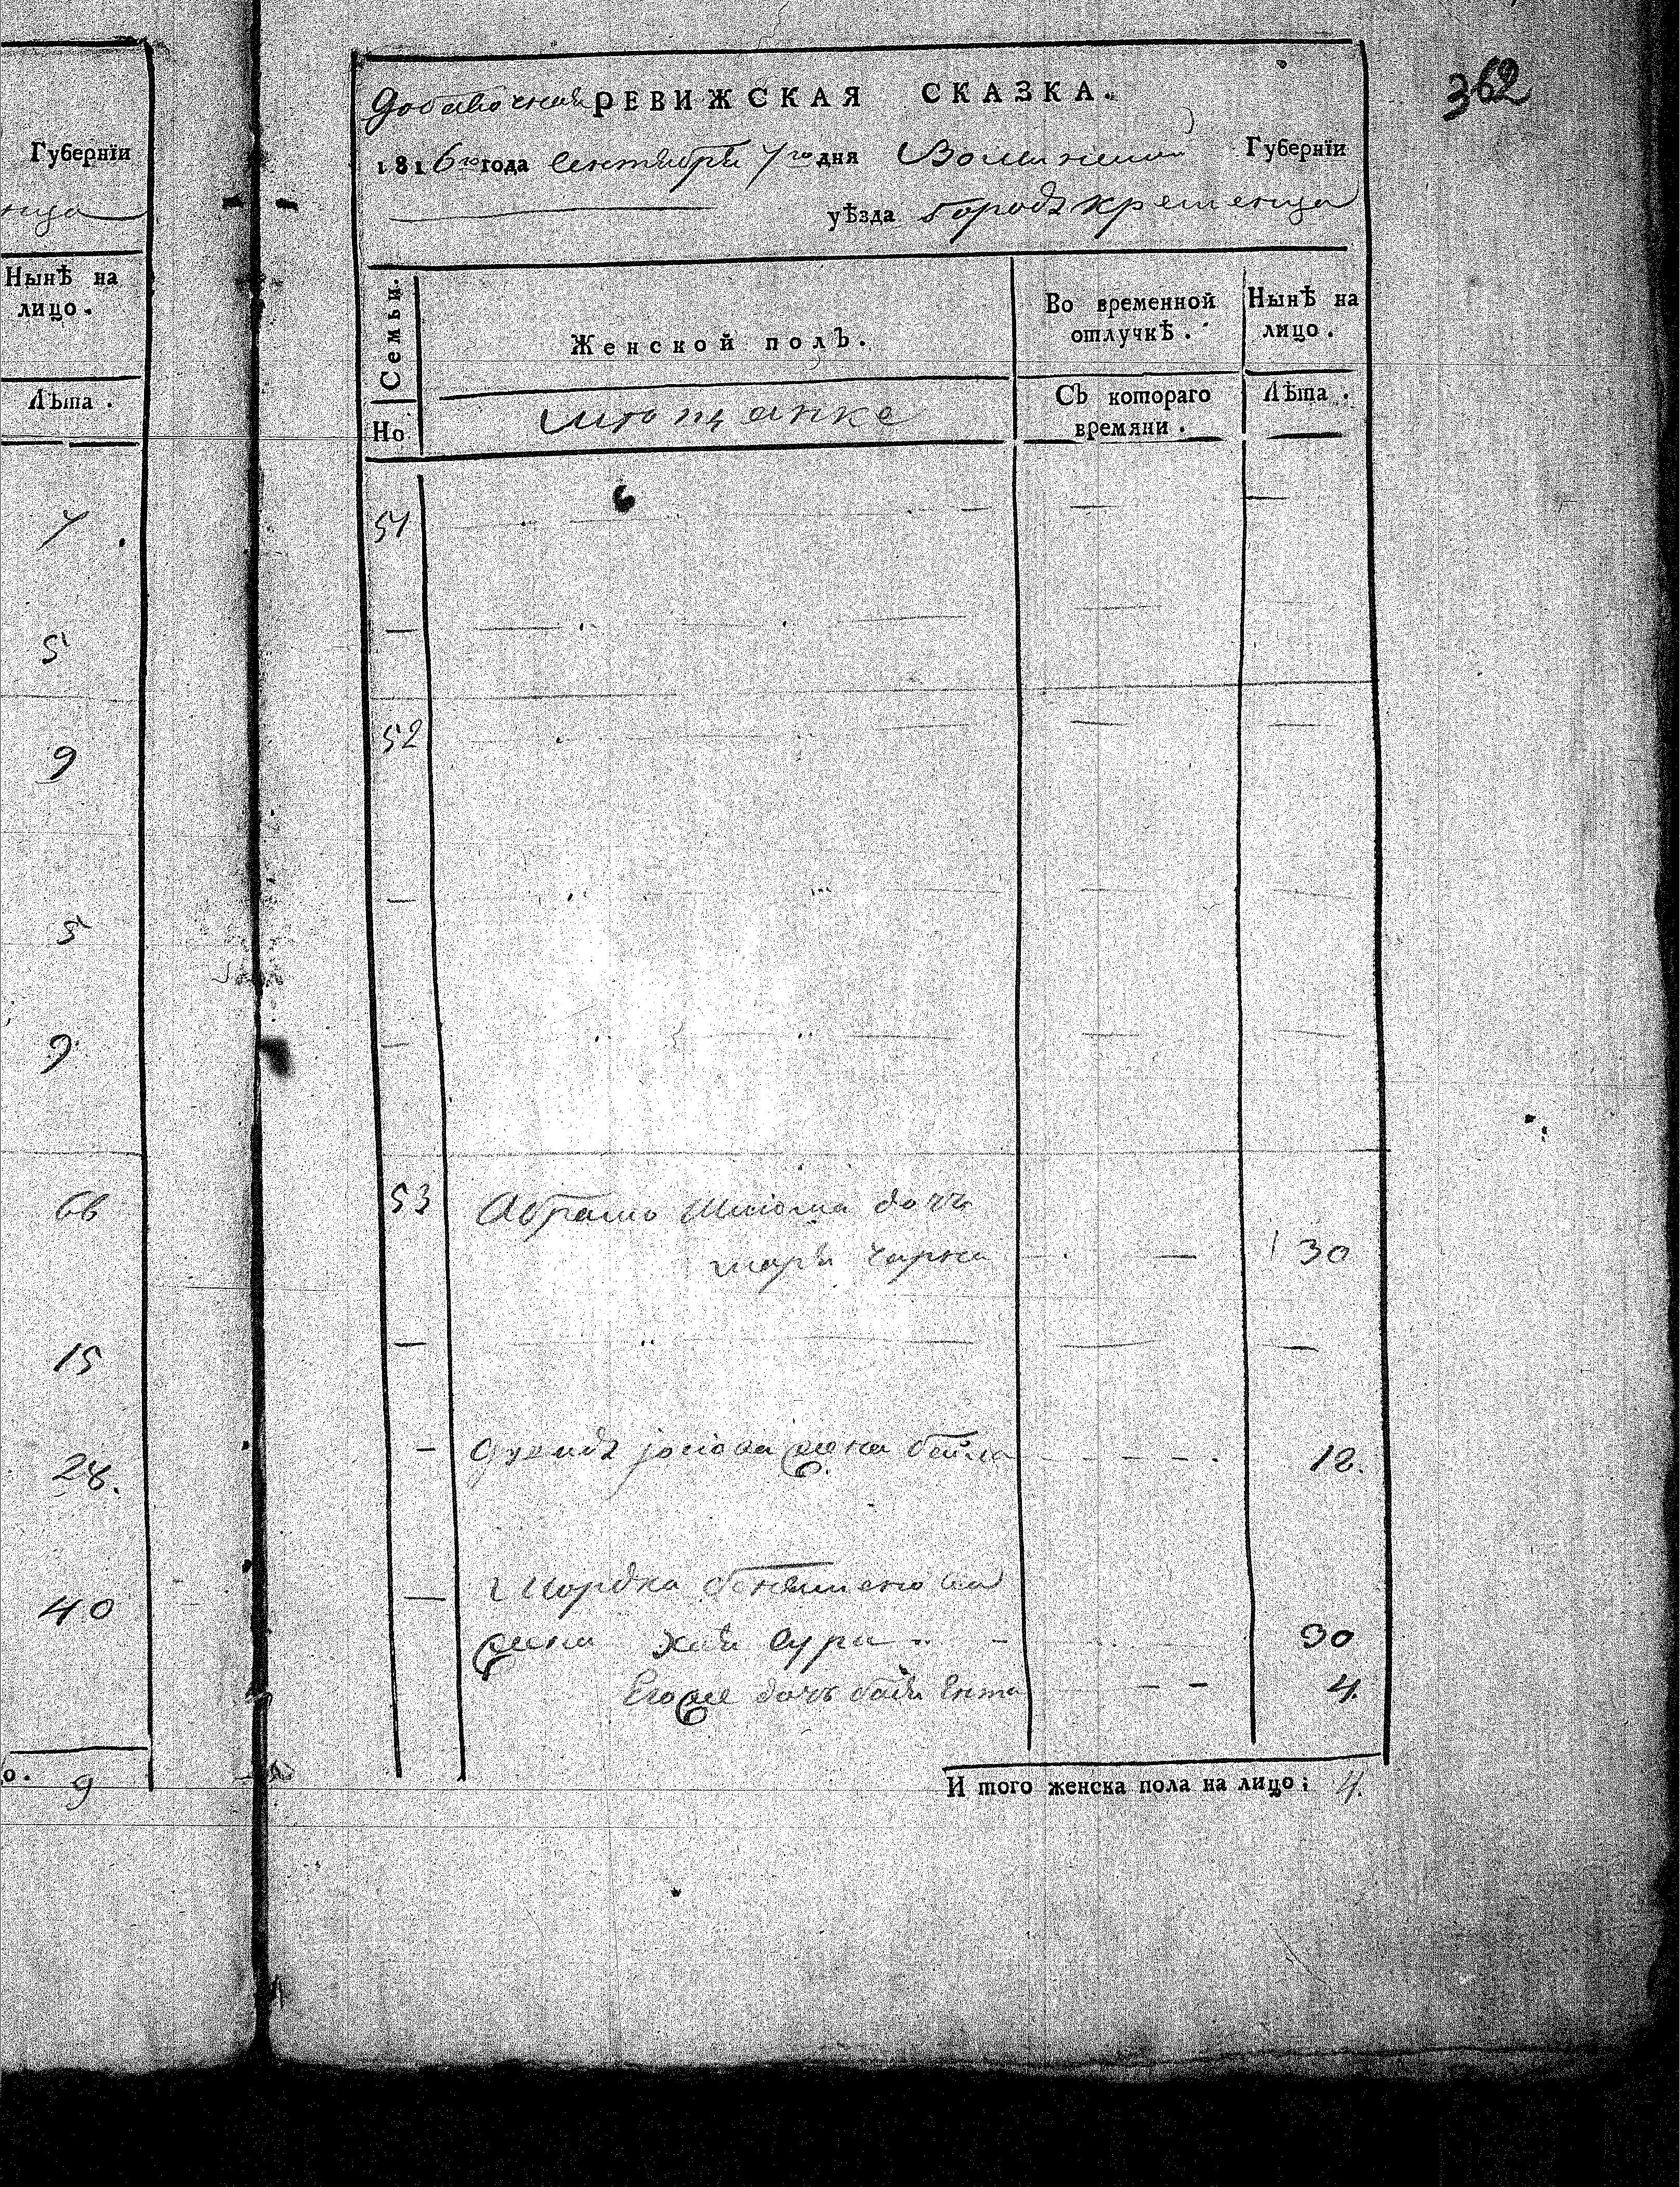 Губернїи
ница
Нынѣ на
лицо.
Лѣта.
7
5
9
5
9
66
15
28.
40
о. 9
362
Добавочная РЕВИЖСКАЯ СКАЗКА.
1816го года Сентября 7го дня Волынской Губернїи
уѣзда города Кременца
Семьи.
Но
Женской полъ.
Во временной
отлучкѣ.
Нынѣ на
лицо.
мѣщанке
Съ котораго
времяни.
Лѣта.
51
52
53 Абрамъ дочь
Марья 30
жена Бейла 18.
Мордка
жена Хая Сура 30
Его же дочь Ента 4.
И того женска пола на лицо; 4.